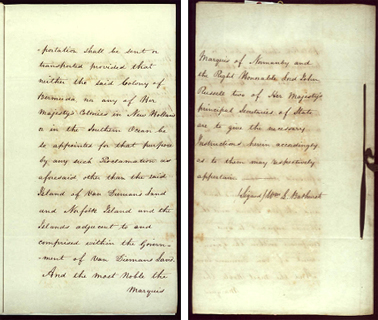 -portation shall be sent or
transported provided that
neither the said Colony of
Bermuda nor any of Her
Majesty's Colonies in New Holland
or in the Southern Ocean be
so appointed for that purpose
by any such Proclamation as
aforesaid other than the said
Island of Van Diemans Land
and Norfolk Island and the
Islands adjacent to and
comprised within the Govern-
-ment of Van Diemans Land.
And the most Noble the
Marquis
Marquis of Normanby and
the Right Honorable Lord John
Russell two of Her Majesty's
principal Secretaries of State
are to give the necessary
Instructions herein accordingly
as to them may respectively
appertain
(Signed) Wm L Bathurst